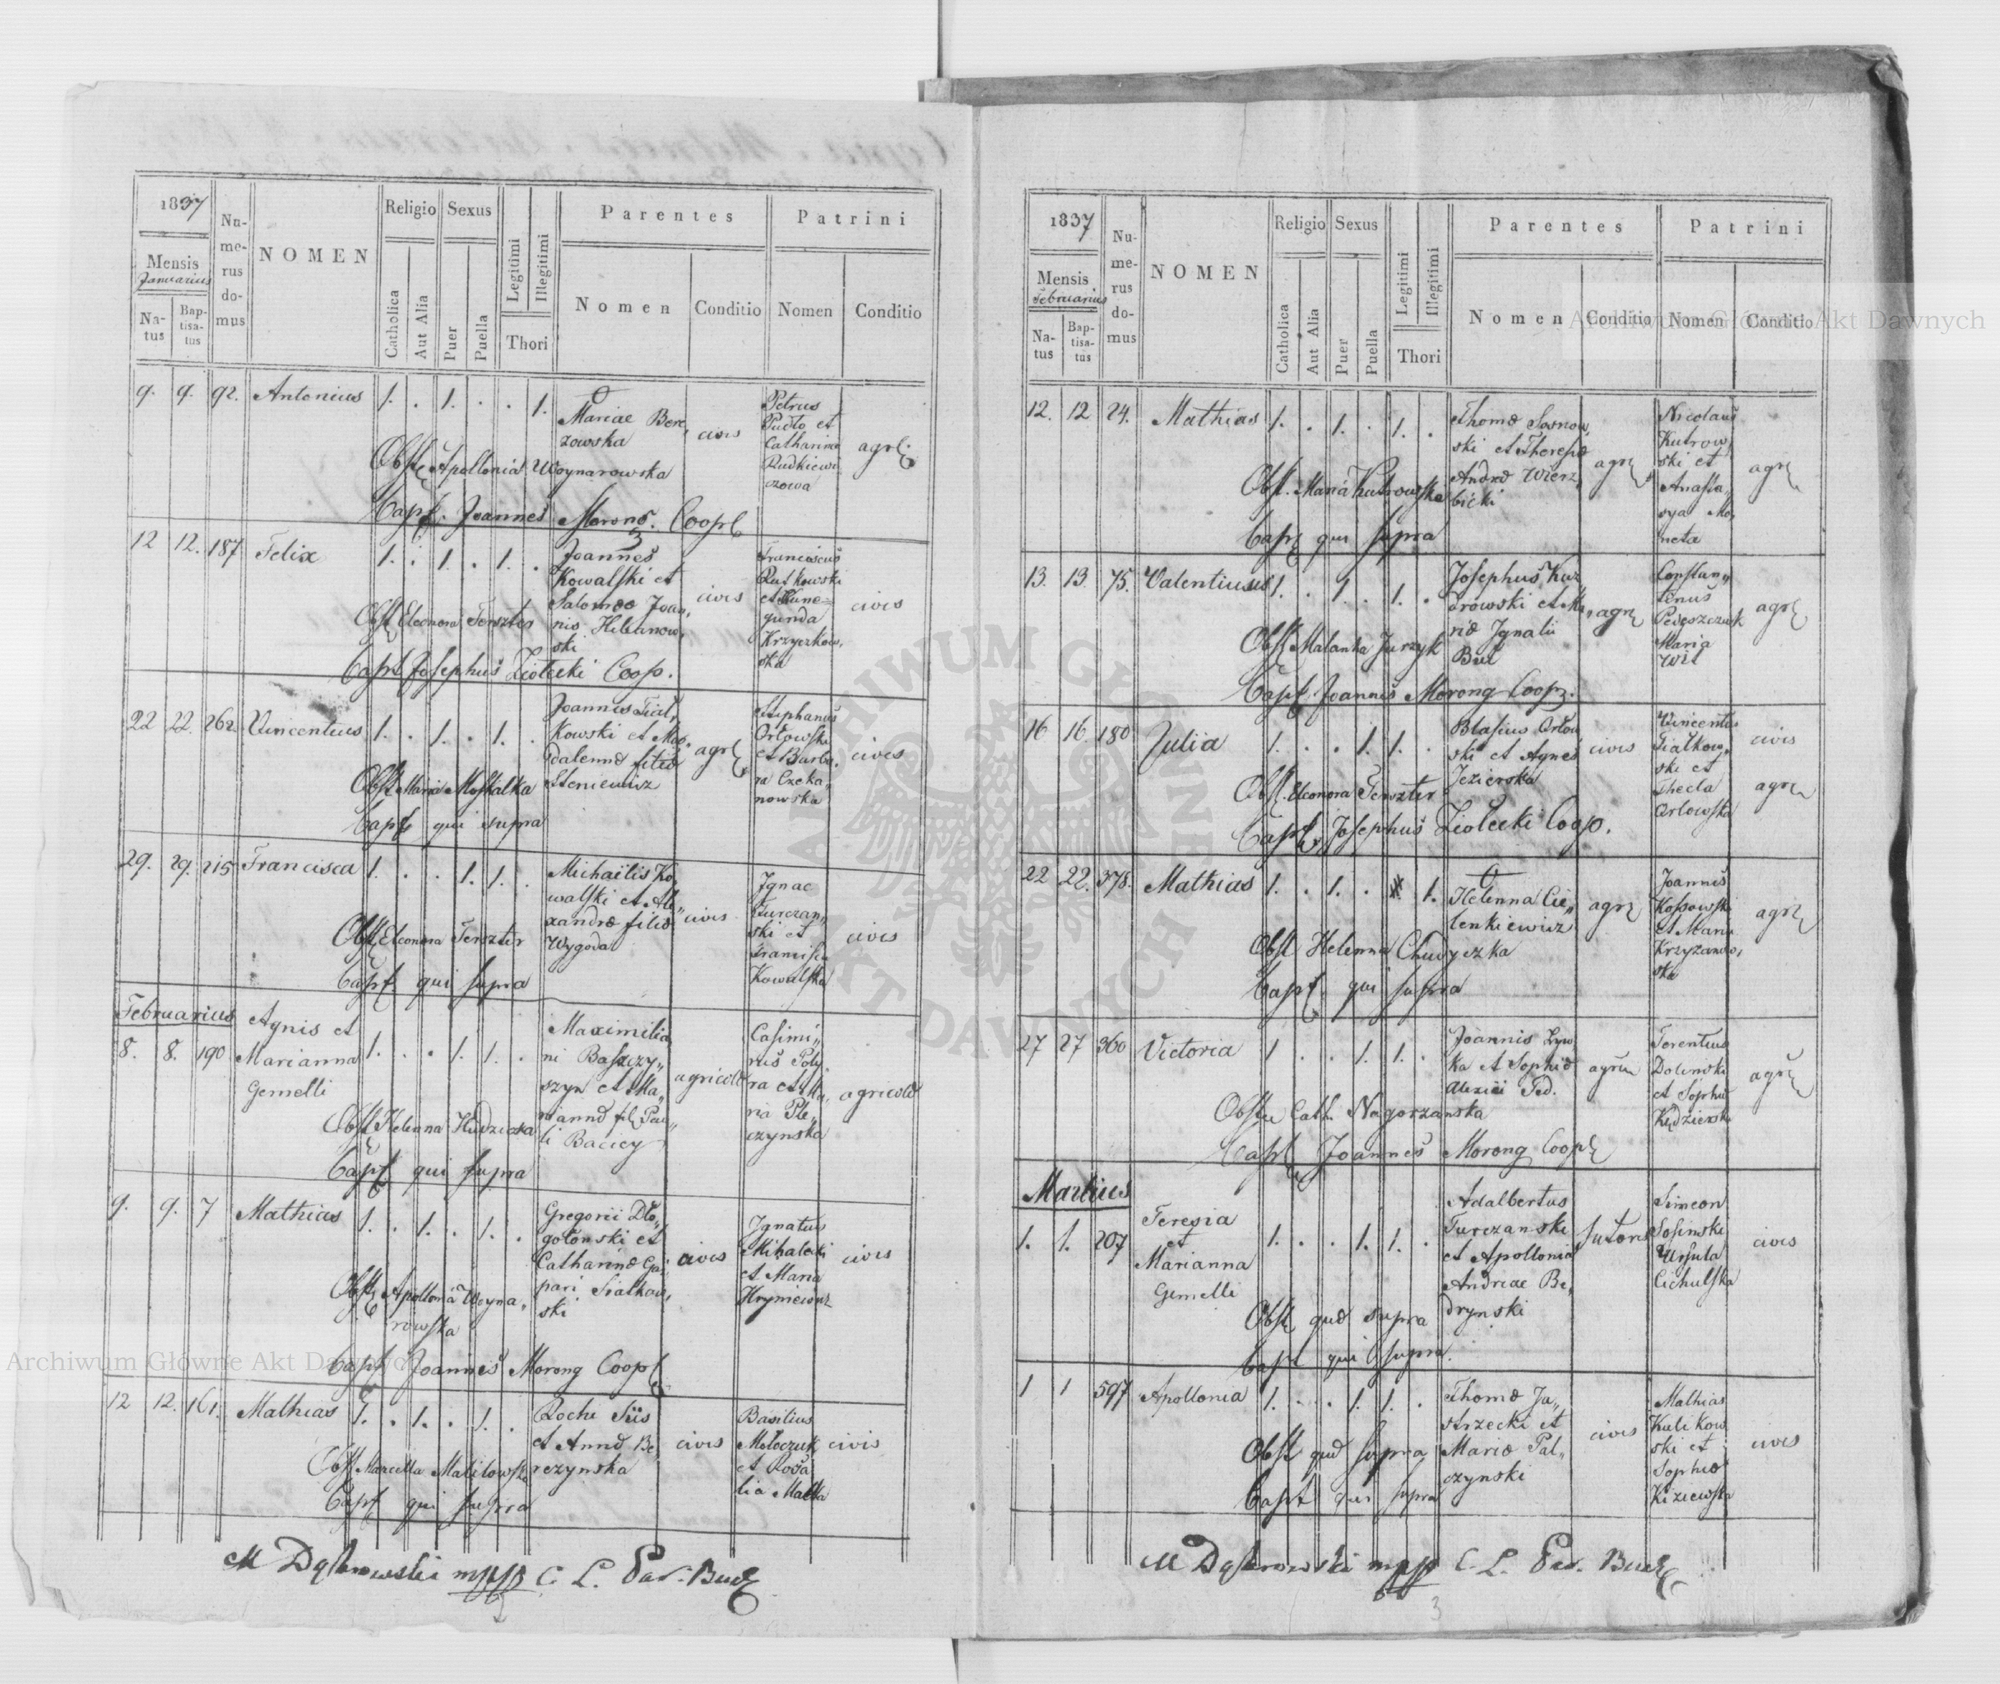 1837
Mensis
Januarius
Na-
tus
Bap-
tisa-
tus
Nu-
me-
rus
do-
mus
NOMEN
Religio
Catholica
Aut Alia
Sexus
Puer
Puella
Legitimi
Illegitimi
Thori
Parentes
Nomen
Conditio
Patrini
Nomen
Conditio
9. 9. 92. Antonius 1. . 1. . . 1.
Mariae Bere,
zowska
civis
Petrus
Pudło et
Catharina
Rudkiewi
czowa
agrlę
Obstę Apollonia Woynarowska
Bapt. Joannes Morong. Coopl
12 12. 187 Felix 1. . 1. . 1. .
Joannes
Kowalski et
Salomeo Joan,
nis Hilianow,
ski
civis
Franciscus
Rutkowski
et Kune-
gunda
Krzyczkow,
ska
civis
Obst Eleonora Ferszter
Bapt Josephus Ziołecki Coop.
22 22. 262 Vincentius 1. . 1. . 1. .
Joannis Fiał,,
Kowski et Mag,
dalenæ filiæ
Steniewicz
agrę
Stephanus
Orłowski
et Barba,
ra Czeka,
nowska
cives
Obst Maria Moskalka
Bapt qui supra
29. 29. 215 Francisca 1. . . 1. 1. .
Michaïlis Ko,
walski et Ale
xandræ filiæ
Wygoda
civis
Ignac
Turczan,,
ski et
Francisca
Kowalska
civis
Obst Eleonora Ferszter
Bapt qui supra
Februarius
8. 8. 190 Agnis et
Marianna
Gemelli
1. . . 1. 1. .
Maximilia
ni Baszczy,,
szyn et Ma,,
riannæ fil Pau,,
li Bacicy
agricolæ
Casimi,,
rus Poly,
ra et Ma,
ria Ple,,
czynska
agricolæ
Obst Helena Hudziczka
Bapt qui supra
9. 9. 7 Mathias 1. . 1. . 1. .
Gregorii Dło,
gołonski et
Catharinæ Gas,
pari Siatkow,
ski
cives
Ignatus
Mihalecki
et Maria
Hrynewicz
cives
Obst Apollona Woyna,
rowska
Bapt Joannes Morong Coopl
12 12. 161. Mathias 1. . 1. . 1. .
Rochi Siis
et Annæ Be,
rezynska
civis
Basilius
Mełoczuk
et Rosa
lia Malka
civis
Obst Marcella Malilowska
Bapt qui supra
M Dąbrowski mpp C. L. Par. Bucz
1837
Mensis
Februarius
Na-
tus
Bap-
tisa-
tus
Nu-
me-
rus
do-
mus
NOMEN
Religio
Catholica
Aut Alia
Sexus
Puer
Puella
Legitimi
Illegitimi
Thori
Parentes
Nomen
Conditio
Patrini
Nomen
Conditio
12. 12 24. Mathias 1. . 1. . 1. .
Thomæ Sosnow,
ski et Theresæ
Andreæ Wierz,
bicki
agrę
Nicolaus
Kutrow,
ski et
Anasta,,
sya Mo,
neta
agrę
Obst. Maria Kutrowska
Bapt qui supra
13. 13. 75. Valentinus 1. . 1. . 1. .
Josephus Kur
drowski et Ma,,
riæ Ignatii
Bul
agrę
Constan,,
tinus
Pedeszczuk
Maria
Wił
agrę
Obst Malanka Jurzyk
Bapt Joannes Morong Coop.
16 16 180 Julia 1. . . 1. 1. .
Blasius Orłow,
ski et Agnes
Jezierska
civis
Vincentus
Fiałkow,
ski et
Thecla
Orłowska
civis
agrę
Obst. Eleonora Ferszter
Bapt Josephus Ziołecki Coop.
22 22. 378. Mathias 1. . 1. . 1.
Helenna Cie,,
lenkiewicz
agrę
Joannes
Kossowski
et Maria
Krzyzanow,
ska
agrę
Obst Helenna Chudyczka
Bapt. qui supra
27 27 360 Victoria 1 . . 1. 1. .
Joannis Lyw
ka et Sophiæ
Alexii Fed.
agrę
Terentius
Dolinski
et Sophia
Kędzierska
agrę
Obste Cath. Nagorzanska
Bapt Joannes Morong Coopl
Martius
1. 1. 207 Teresia
et
Marianna
Gemelli
1. . . 1. 1. .
Adalbertus
Turczanski
et Apollonia
Andreae Be,
drynski
sutoris
Simeon
Sosinski
Ursula
Cichulska
civis
Obst quæ supra
Bapt qui supra.
1 1 597 Apollonia 1. . . 1. 1. .
Thomæ Ja,,
strzecki et
Mariæ Pal-
czynski
civis
Mathias
Kulikow,
ski et
Sophia
Kiziewska
civis
Obst quæ supra
Bapt qui supra
M Dąbrowski mpp C. L. Par. Bucz
3
Archiwum Główne Akt Dawnych
Archiwum Główne Akt Dawnych
ARCHIWUM GŁÓWNE AKT DAWNYCH